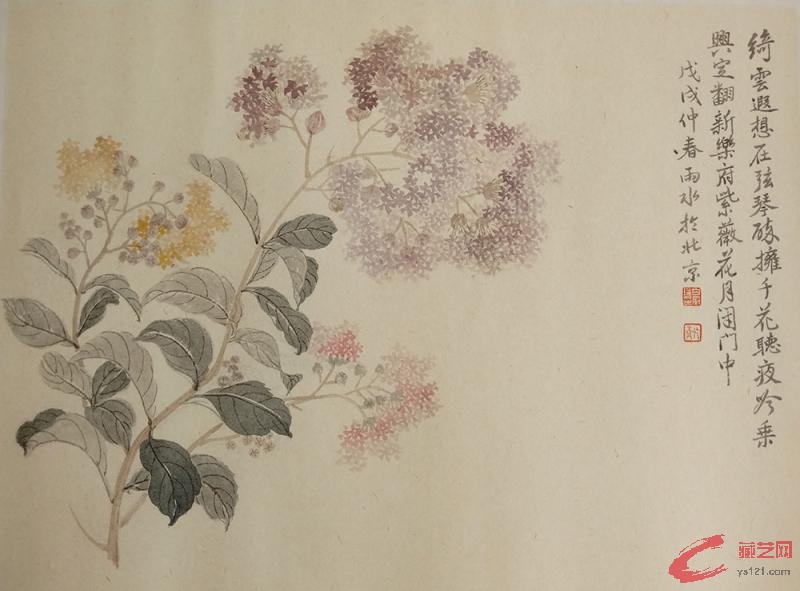 綺雲遐想在弦琴醉擁千花聽夜吟乘
興定翻新樂府紫薇花月閏門中
戊戌仲春雨水於北京
藏艺网
ys121.com